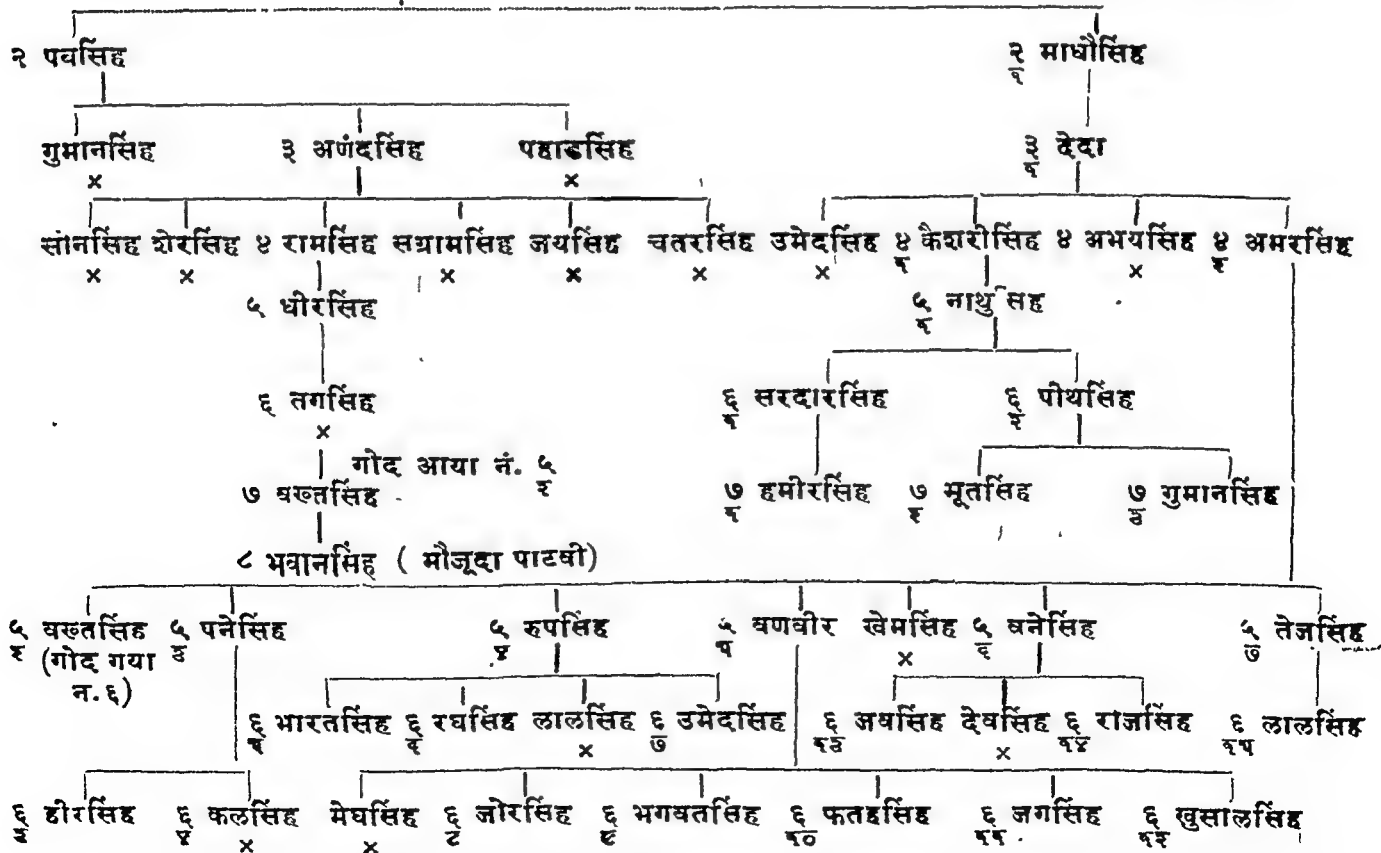 २ पवसिंह २/१ माधौसिंह
गुमानसिंह ३ अणंदसिंह पहाडसिंह ३/१ देदा
× ×
सांनसिंह शेरसिंह ४ रामसिंह सग्रामसिंह जयसिंह चतरसिंह उमेदसिंह ४/१ कैशरीसिंह ४ अभयसिंह ४/२ अमरसिंह
× × × × × × ×
५ धीरसिंह ५/१ नाथु सह
६ तगसिंह ६/१ सरदारसिंह ६/२ पीथसिंह
×
गोद आया नं. ५/२
७ वख्तसिंह ७/१ हमीरसिंह ७/२ भूतसिंह ७/३ गुमानसिंह
८ भवानसिंह ( मौजूदा पाटवी)
५/२ वख्तसिंह ५/३ पनेसिंह ५/४ रुपसिंह ५/५ वणवीर खेमसिंह ५/६ वनेसिंह ५/७ तेजसिंह
(गोद गया ×
न. ६)
६/५ भारतसिंह ६/६ रघसिंह लालसिंह ६/७ उमेदसिंह ६/१३ जवसिंह देवसिंह ६/१४ राजसिंह ६/१५ लालसिंह
× ×
६/३ हीरसिंह ६/४ कलसिंह मेघसिंह ६/८ जोरसिंह ६/९ भगवतसिंह ६/१० फतहसिंह ६/११ जगसिंह ६/१२ खुसालसिंह
× ×